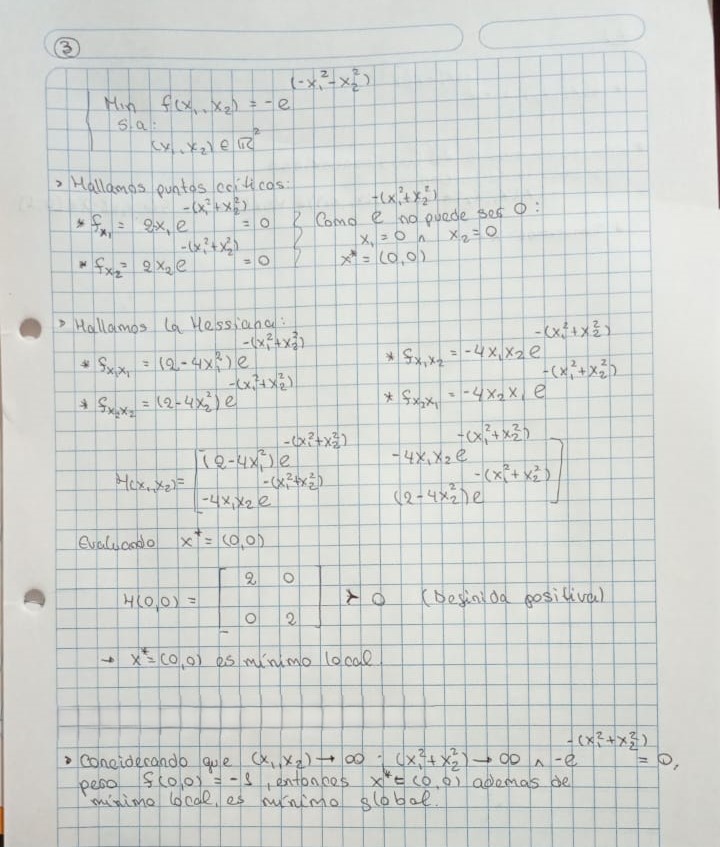 3
Min f(x₁, x₂) = -e^(-x₁²-x₂²)
s.a:
(x₁, x₂) ∈ ℝ²
> Hallamos puntos criticos:
* fx₁ = 2x₁e^-(x₁²+x₂²) = 0 } Como e^-(x₁²+x₂²) no puede ser 0:
x₁=0 ∧ x₂=0
* fx₂ = 2x₂e^-(x₁²+x₂²) = 0 x* = (0,0)
> Hallamos la Hessiana:
* fx₁x₁ = (2-4x₁²)e^-(x₁²+x₂²) * fx₁x₂ = -4x₁x₂e^-(x₁²+x₂²)
* fx₂x₂ = (2-4x₂²)e^-(x₁²+x₂²) * fx₂x₁ = -4x₂x₁e^-(x₁²+x₂²)
H(x₁,x₂) = [ (2-4x₁²)e^-(x₁²+x₂²) -4x₁x₂e^-(x₁²+x₂²)
-4x₁x₂e^-(x₁²+x₂²) (2-4x₂²)e^-(x₁²+x₂²) ]
Evaluando x* = (0,0)
H(0,0) = [ 2 0
0 2 ] ≻ 0 (Definida positiva)
→ x* = (0,0) es mínimo local.
> Conciderando que (x₁,x₂) → ∞ : (x₁²+x₂²) → ∞ ∧ -e^-(x₁²+x₂²) = 0,
pero f(0,0) = -1, entonces x* = (0,0) ademas de
mínimo local, es mínimo global.